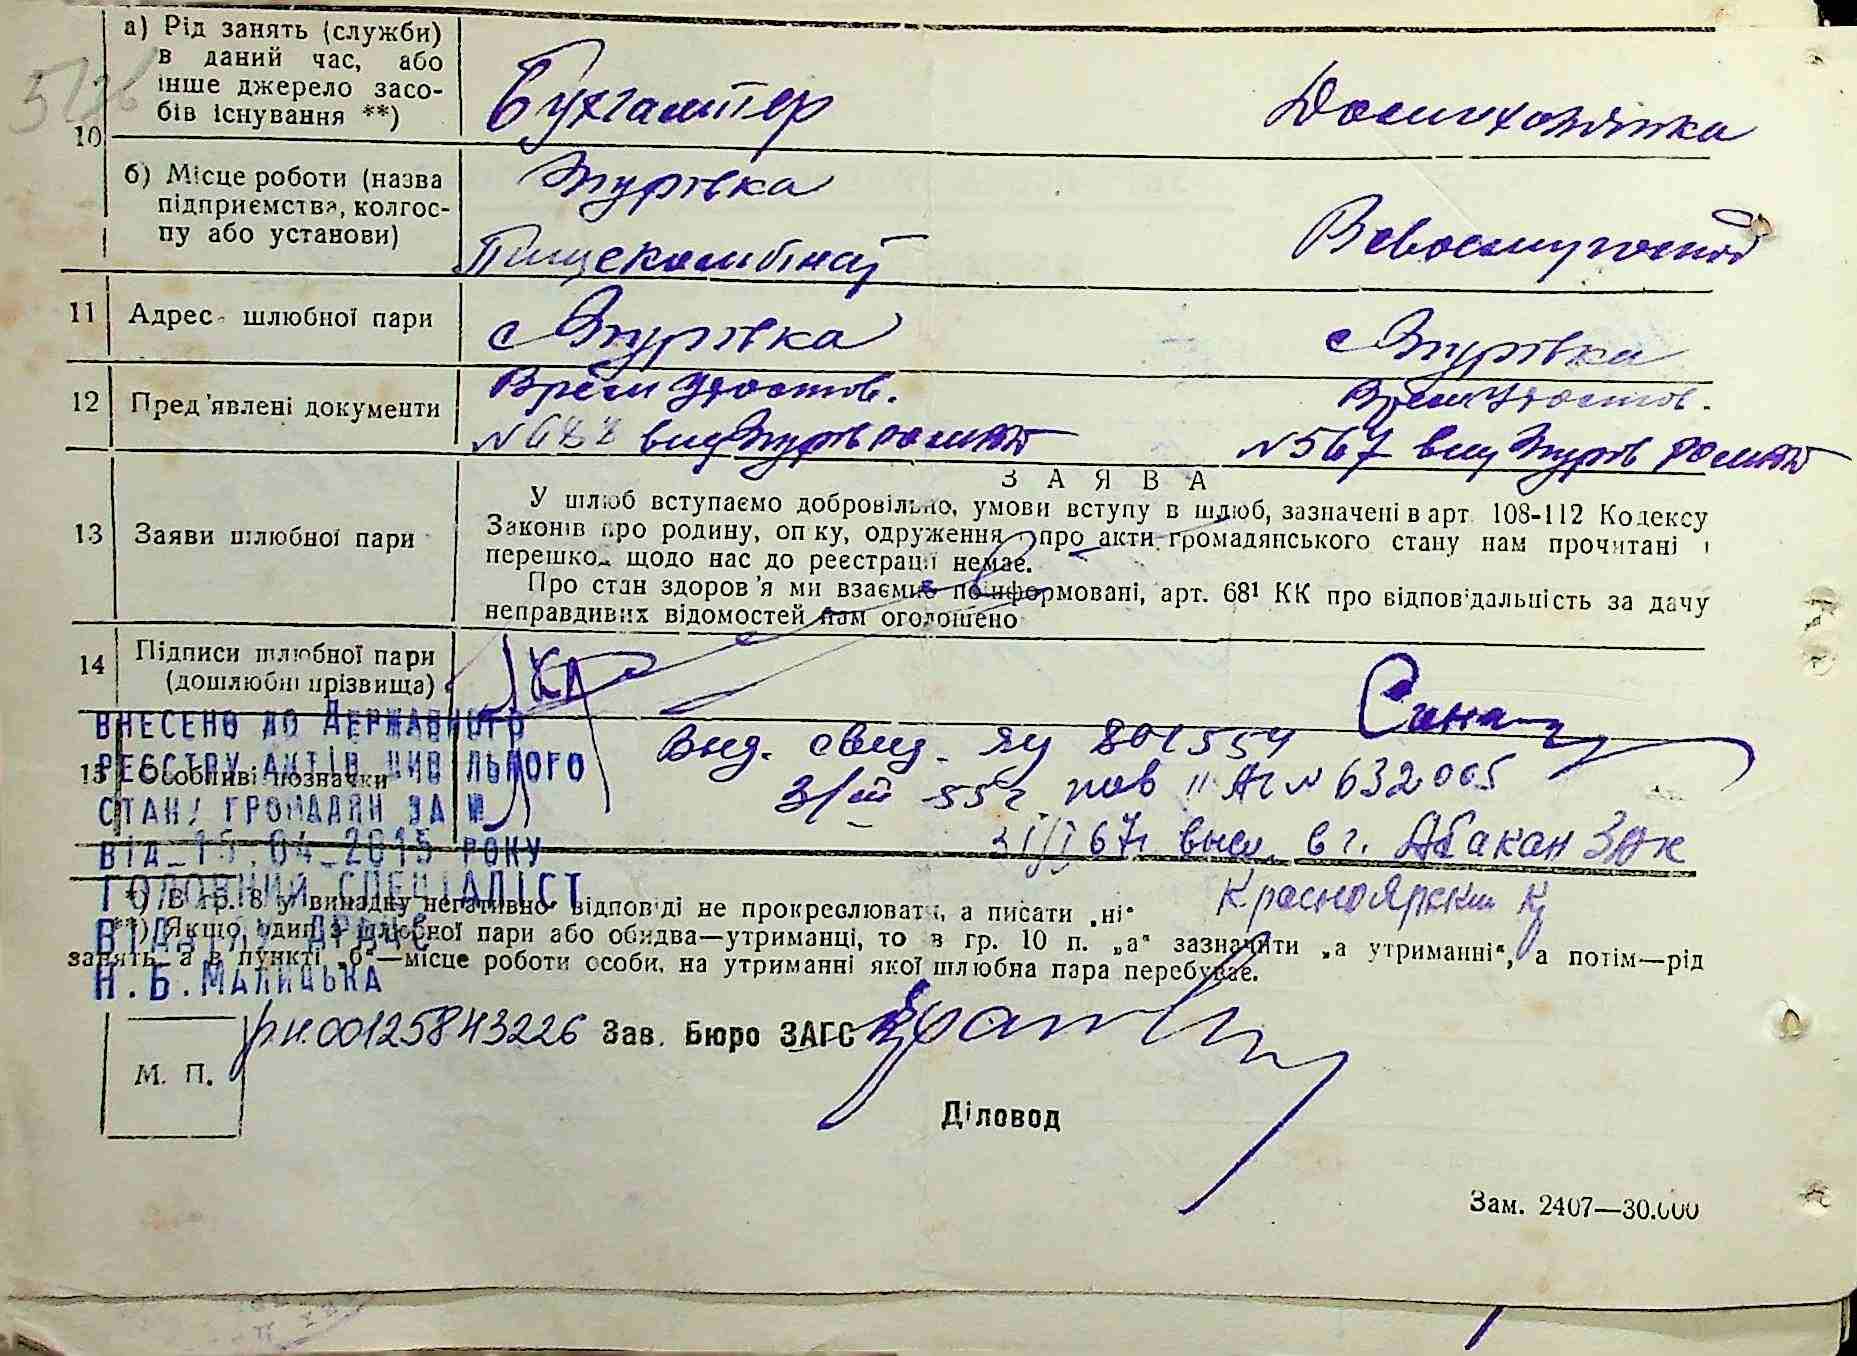 а) Рід занять (служби)
в даний час, або
інше джерело засо-
бів існування **)
Бухгалтер
Домохозяйка
10
б) Місце роботи (назва
підприємства, колгос-
пу або установи)
Згурівка
Пищекомбінат
11 Адрес шлюбної пари
с Згурівка с Згурівка
12 Пред'явлені документи
Врем Удостов. Врем Удостов.
№ 567
З А Я В А
13 Заяви шлюбної пари
У шлюб вступаємо добровільно, умови вступу в шлюб, зазначені в арт. 108-112 Кодексу
Законів про родину, опіку, одруження про акти громадянського стану нам прочитані і
перешкод щодо нас до реєстрації немає.
Про стан здоров'я ми взаємно поінформовані, арт. 68¹ КК про відповідальність за дачу
неправдивих відомостей нам оголошено
14 Підписи шлюбної пари
(дошлюбні прізвища)
ВНЕСЕНО ДО ДЕРЖАВНОГО
РЕЄСТРУ АКТІВ ЦИВІЛЬНОГО
СТАНУ ГРОМАДЯН ЗА №
ВІД 15.04.2015 РОКУ
ГОЛОВНИЙ СПЕЦІАЛІСТ
ВІДДІЛУ ДРАЦС
Н.Б.МАЛИЦЬКА
15 Особливі позначки
Выд. свид. ЯУ 801554
3/III 55г пов II АГ № 632005
67г. выд. в г. Абакан
Красноярский К
*) В гр. 8 у випадку негативної відповіді не прокреслювати, а писати „ні“
**) Якщо один з шлюбної пари або обидва—утриманці, то в гр. 10 п. „а“ зазначити „а утриманні“, а потім—рід
занять а в пункті „б“—місце роботи особи, на утриманні якої шлюбна пара перебуває.
р.н.00125843226 Зав. Бюро ЗАГС
М. П.
Діловод
Зам. 2407—30.000